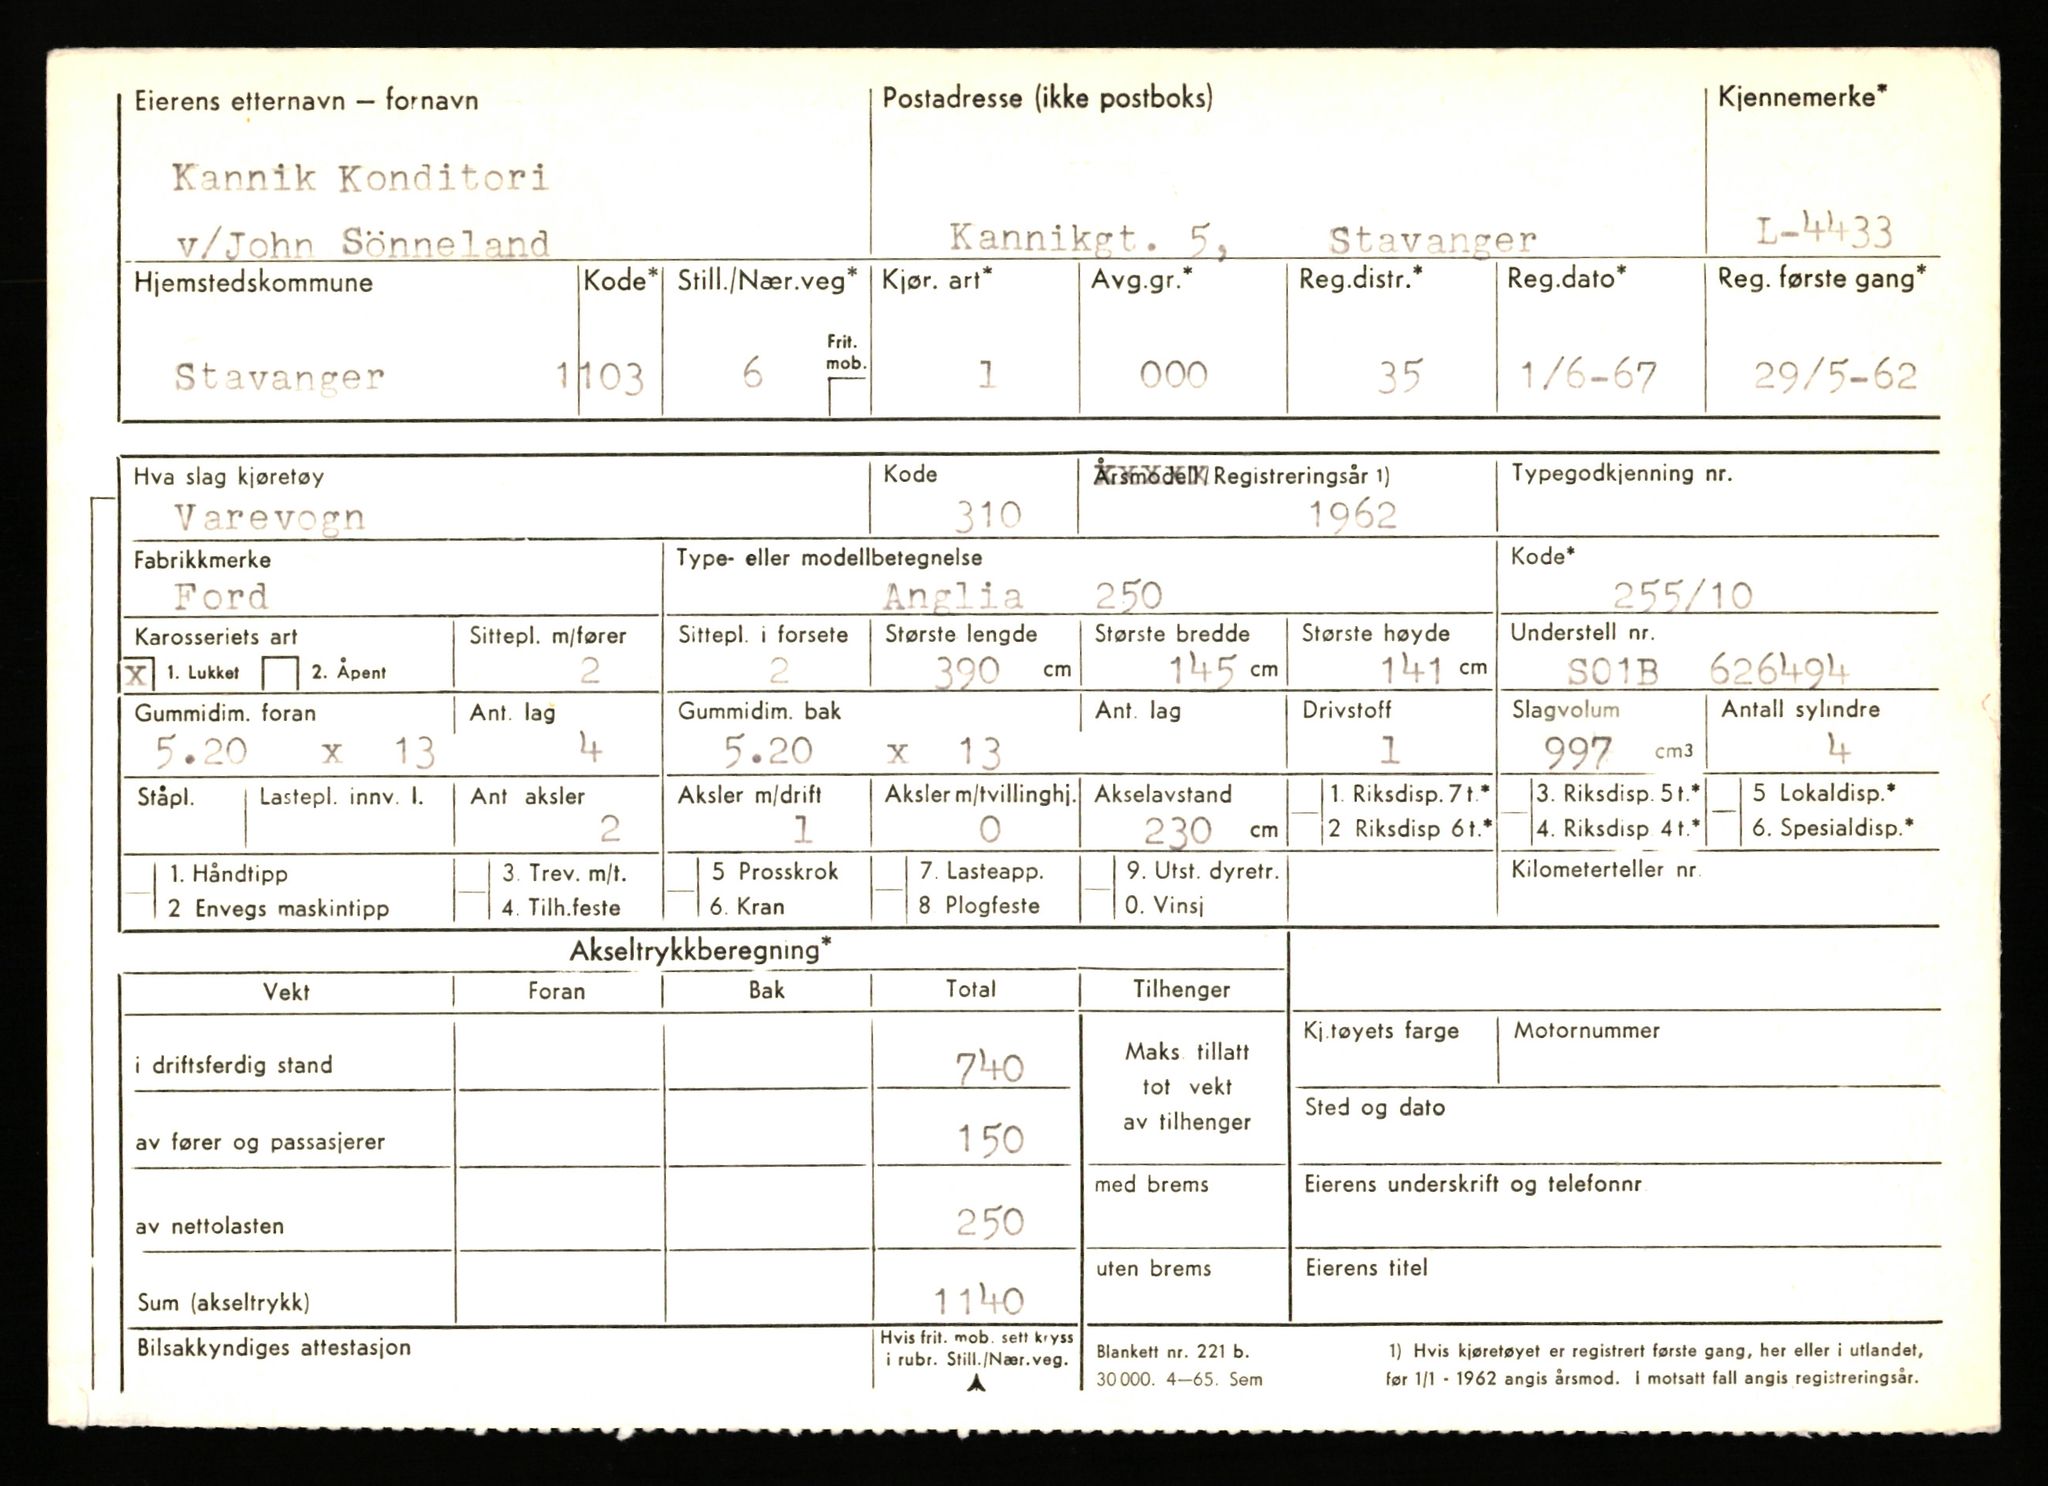 Eierens etternavn – fornavn Postadresse (ikke postboks) Kjennemerke*
Kannik Konditori
v/John Sönneland Kannikgt. 5, Stavanger L-4433
Hjemstedskommune Kode* Still./Nær.veg* Kjør. art* Avg.gr.* Reg.distr.* Reg.dato* Reg. første gang*
Frit.
mob.
Stavanger 1103 6 1 000 35 1/6-67 29/5-62
Hva slag kjøretøy Kode Årsmodell/Registreringsår 1) Typegodkjenning nr.
Varevogn 310 1962
Fabrikkmerke Type- eller modellbetegnelse Kode*
Ford Anglia 250 255/10
Karosseriets art Sittepl. m/fører Sittepl. i forsete Største lengde Største bredde Største høyde Understell nr.
X 1. Lukket 2. Åpent 2 2 390 cm 145 cm 141 cm S01B 626494
Gummidim. foran Ant. lag Gummidim. bak Ant. lag Drivstoff Slagvolum Antall sylindre
5.20 x 13 4 5.20 x 13 1 997 cm3 4
Ståpl. Lastepl. innv. l. Ant aksler Aksler m/drift Aksler m/tvillinghj. Akselavstand 1. Riksdisp. 7 t.* 3. Riksdisp. 5 t.* 5 Lokaldisp.*
2 1 0 230 cm 2 Riksdisp 6 t.* 4. Riksdisp 4 t.* 6. Spesialdisp.*
1. Håndtipp 3. Trev. m/t. 5 Prosskrok 7. Lasteapp. 9. Utst. dyretr. Kilometerteller nr.
2 Envegs maskintipp 4. Tilh.feste 6. Kran 8 Plogfeste 0. Vinsj
Akseltrykkberegning*
Vekt Foran Bak Total Tilhenger
Kj.tøyets farge Motornummer
i driftsferdig stand 740 Maks. tillatt
tot vekt
av tilhenger
Sted og dato
av fører og passasjerer 150
med brems Eierens underskrift og telefonnr
av nettolasten 250
uten brems Eierens titel
Sum (akseltrykk) 1140
Bilsakkyndiges attestasjon Hvis frit. mob. sett kryss
i rubr. Still./Nær.veg.
Blankett nr. 221 b. 1) Hvis kjøretøyet er registrert første gang, her eller i utlandet,
30 000. 4–65. Sem før 1/1 - 1962 angis årsmod. I motsatt fall angis registreringsår.